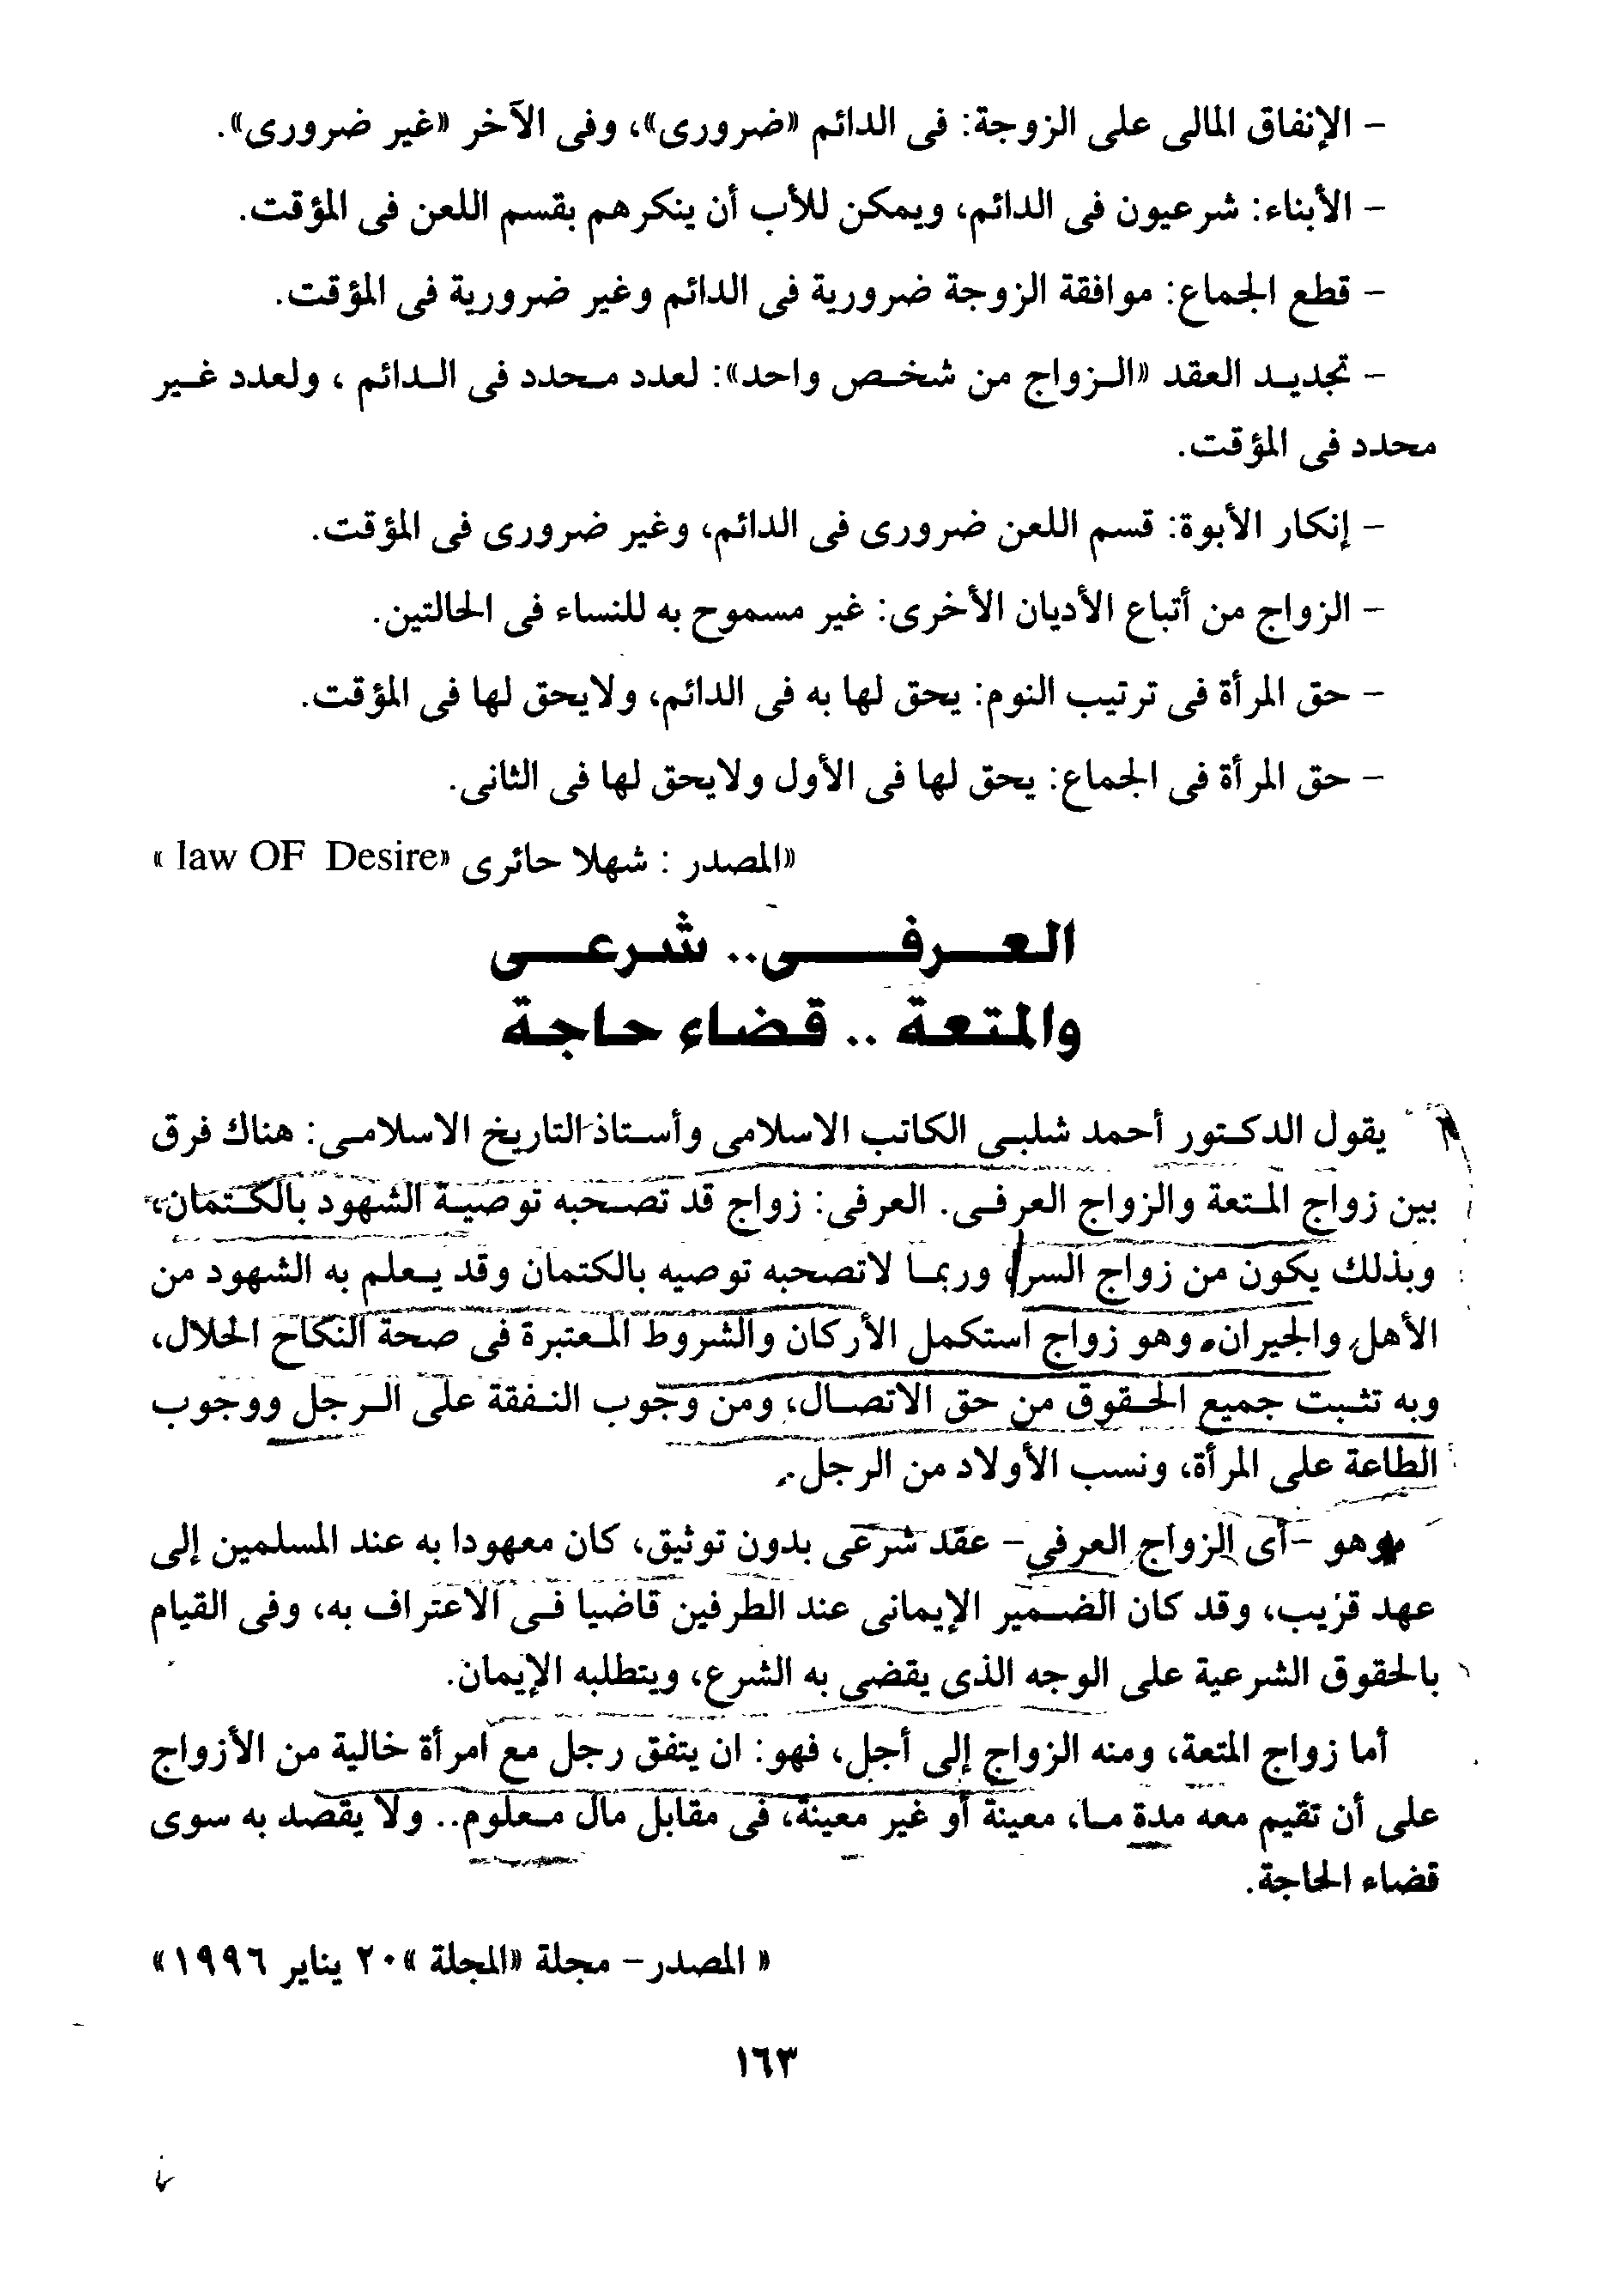 - الإنفاق المالى على الزوجة: فى الدائم «ضرورى»، وفى الآخر «غير ضرورى».
- الأبناء: شرعيون فى الدائم، ويمكن للأب أن ينكرهم بقسم اللعن فى المؤقت.
- قطع الجماع: موافقة الزوجة ضرورية فى الدائم وغير ضرورية فى المؤقت.
- تجديد العقد «الزواج من شخص واحد»: لعدد محدد فى الدائم ، ولعدد غير
محدد فى المؤقت.
- إنكار الأبوة: قسم اللعن ضرورى فى الدائم، وغير ضرورى فى المؤقت.
- الزواج من أتباع الأديان الأخرى: غير مسموح به للنساء فى الحالتين.
- حق المرأة فى ترتيب النوم: يحق لها به فى الدائم، ولايحق لها فى المؤقت.
- حق المرأة فى الجماع: يحق لها فى الأول ولايحق لها فى الثانى.
«المصدر : شهلا حائرى «law OF Desire »
العرفى.. شرعى
والمتعة .. قضاء حاجة
يقول الدكتور أحمد شلبى الكاتب الاسلامى وأستاذ التاريخ الاسلامى: هناك فرق
بين زواج المتعة والزواج العرفى. العرفى: زواج قد تصحبه توصية الشهود بالكتمان،
وبذلك يكون من زواج السر، وربما لاتصحبه توصيه بالكتمان وقد يعلم به الشهود من
الأهل والجيران. وهو زواج استكمل الأركان والشروط المعتبرة فى صحة النكاح الحلال،
وبه تثبت جميع الحقوق من حق الاتصال، ومن وجوب النفقة على الرجل ووجوب
الطاعة على المرأة، ونسب الأولاد من الرجل.
وهو -أى الزواج العرفى- عقد شرعى بدون توثيق، كان معهودا به عند المسلمين إلى
عهد قريب، وقد كان الضمير الإيمانى عند الطرفين قاضيا فى الاعتراف به، وفى القيام
بالحقوق الشرعية على الوجه الذى يقضى به الشرع، ويتطلبه الإيمان.
أما زواج المتعة، ومنه الزواج إلى أجل، فهو: ان يتفق رجل مع امرأة خالية من الأزواج
على أن تقيم معه مدة ما، معينة أو غير معينة، فى مقابل مال معلوم.. ولا يقصد به سوى
قضاء الحاجة.
« المصدر- مجلة «المجلة »٢٠ يناير ١٩٩٦»
١٦٣